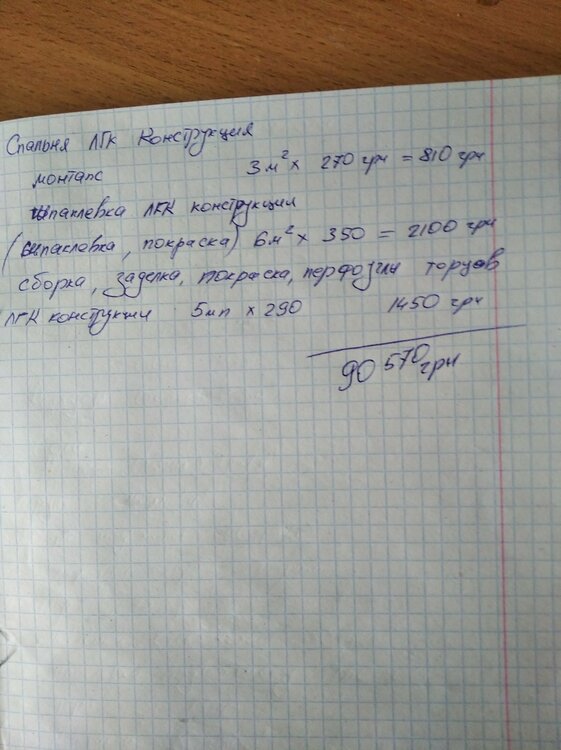 Спальня ЛГК Конструкция
монтаж 3 м² х 270 грн = 810 грн
шпаклевка ЛГК конструкции
(шпаклевка, покраска) 6 м² х 350 = 2100 грн
сборка, заделка, покраска, перфоуглы торцов
ЛГК конструкции 5мп х 290 1450 грн
90 570 грн